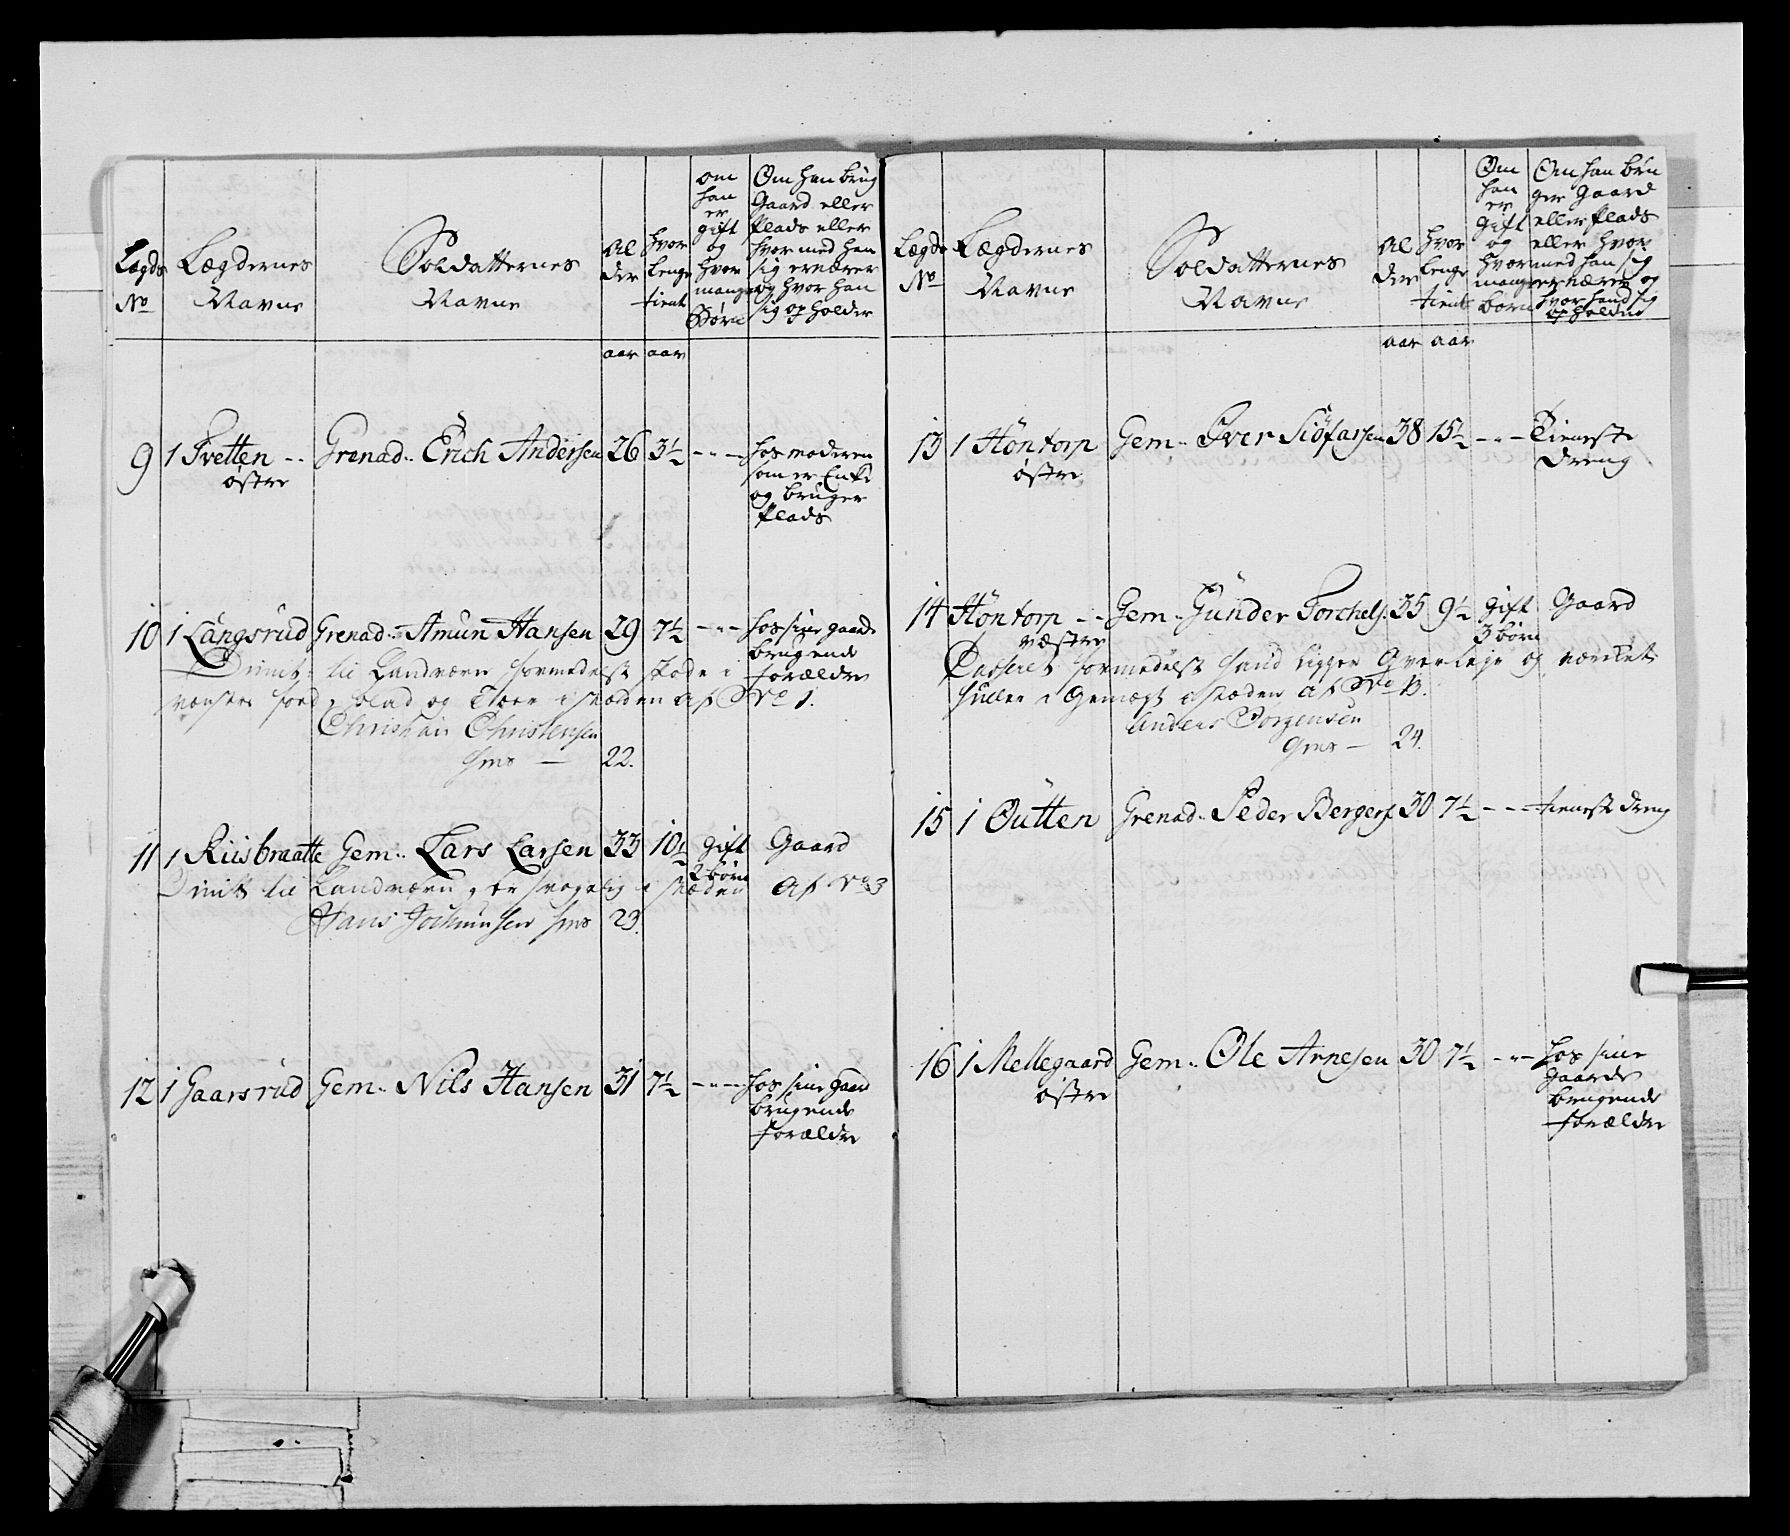 Lægds
No
Lægdernes
Navne
Soldatternes
Navne
Al
der
hvor
lenge
tient
om
han
er
gift
og
hvor
mange
Børn
Om han brug
Gaard eller
Plads eller
hvor med han
sig ernærer
og hvor han
sig opholder
aar aar
9 1 Tvetten -- Grenad.. Erich Andersen 26 3½ -"- hos moderen
østre
som er Enke
og bruger
Plads
10 1 Langsrud Grenad.. Amun Hansen 29 7½ -"- hos sine gaard
brugende
forældre
Dimit: til Landværn formedelst skade i
venstre fod, og i stæden af No 1.
Christian Christensen
22.
11 1 Riisbraatte Gem.. Lars Larsen 33 10½ gift Gaard
2 børn
Dimit til Landværn, er svagelig i stæden af No 3
Hans Jochumsen 23.
12 1 Gaarsrud Gem.. Nils Hansen 31 7½ -"- hos sine gaard
brugende
forældre
Lægds
No
Lægdernes
Navne
Soldatternes
Navne
Al
der
hvor
lenge
tient
Om
han
er
gift
og
hvor
mange
børn
Om han bru
ger Gaard
eller Plads
eller hvor
med han sig
ernærer og
hvor hand sig
opholder
aar aar
13 1 Höntorp Gem.. Iver Siöfarsen 38 15½ -"- Tieneste
østre
dreng
14 Höntorp -- Gem.. Gunder Torchels. 35 9½ gift Gaard
væstre
3 børn
Casseret formedelst hand ligger og
i i stæden af No
Anders Jorgensen
24.
15 1 Outten Grenad.. Peder Bergers 30 7½ -"- tienest dreng
16 1 Mellegaard Gem.. Ole Arnesen 30 7½ -"- hos sine
østre
gaards
brugende
forældre